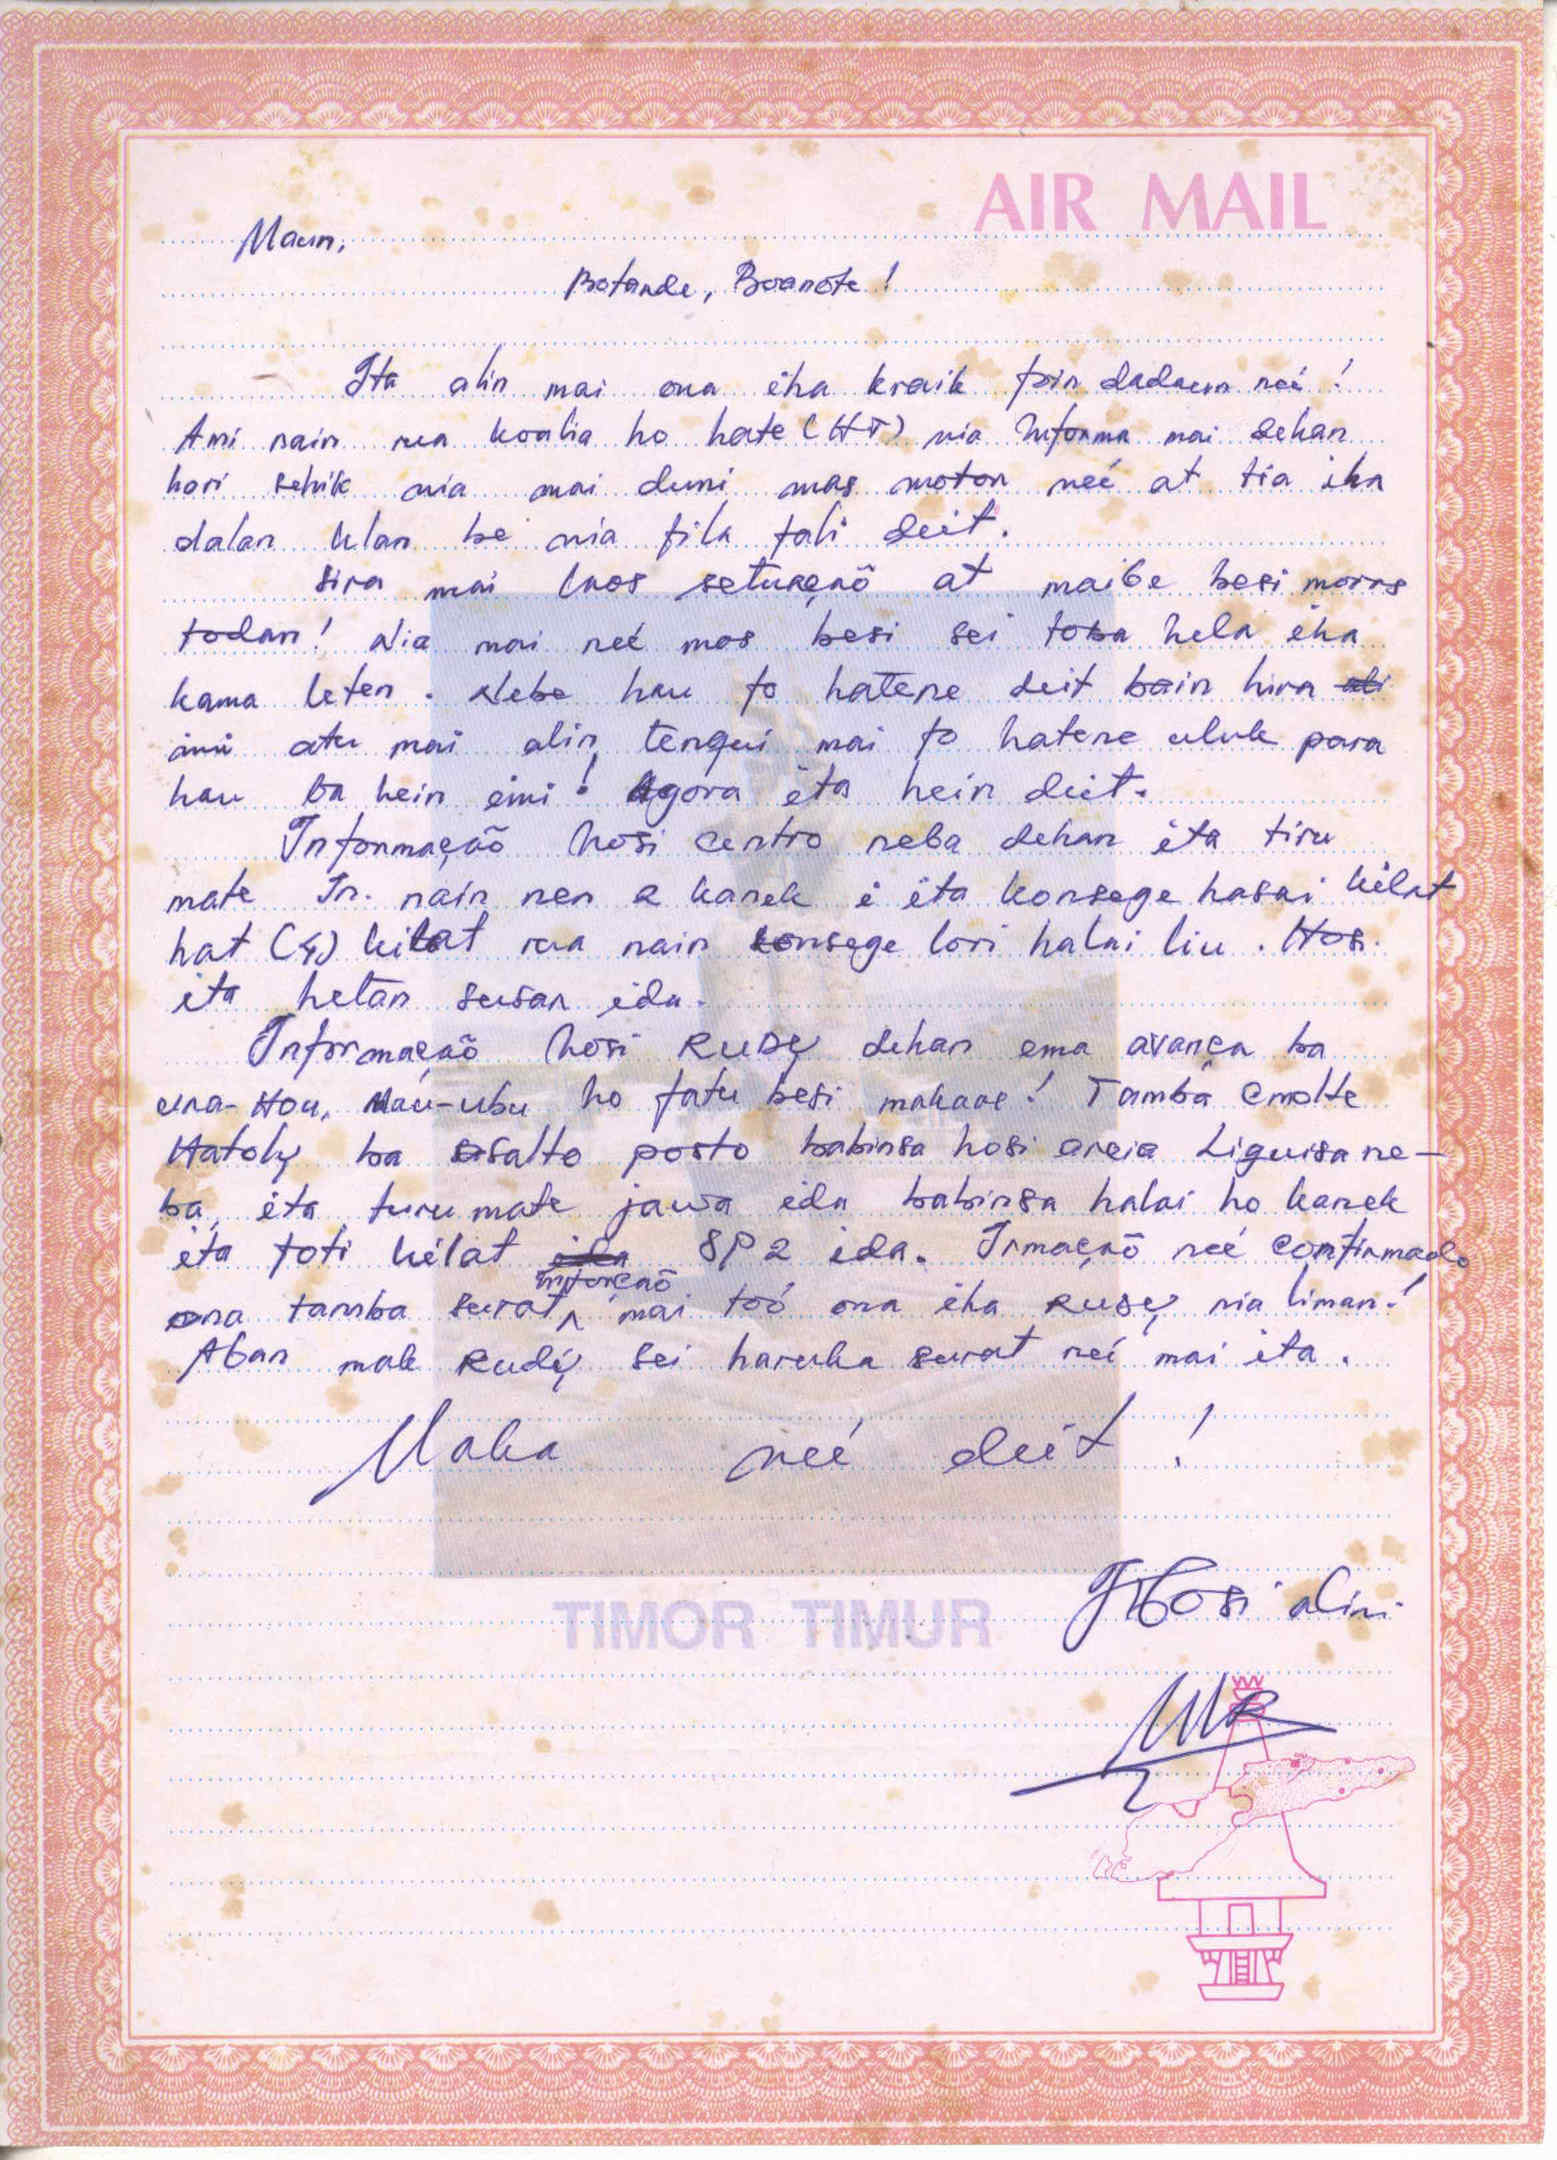 AIR MAIL
Maun,
Botarde, Boanote!
Ita alin mai ona iha kraik foin dadaun neé!
Ami nain rua koalia ho hate (HT) nia Informa mai dehan
hori sehik nia mai duni mas moton neé at tia iha
dalan klan be nia fila fali deit.
Sira mai laos setuaçaõ at maibe besi morrs
todan! Nia mai neé mos besi sei toba hela iha
kama leten. Nebe hau fo hatene deit bain hira
imi atu mai alin tenqui mai fo hatene uluk para
hau ba hein eimi! Agora ita hein deit.
Informaçaõ hosi centro neba dehan ita tiru
mate In. nain nen 2 kanek i ita konsege hasai kilat
hat (4) kilat rua nain konsege lori halai liu. Hos.
ita hetan susar ida.
Informaçaõ hosi RUDY dehan ema avança ba
una-Hou, Mau-ubu ho fatu besi makaae! Tamba Cmdte
Hatoly ba asalto posto babinsa hosi areia Liguisa ne-
ba, ita turu mate jawa ida babinsa halai ho kanek
ita foti kilat ida SP2 ida. Irmaçaõ neé confirmado
ona tamba surat inforçaõ mai toó ona iha RUDY nia liman!
Aban mak Rudÿ sei haruka surat neé mai ita.
Maka neé deit!
Hosi alin
MR
TIMOR TIMUR